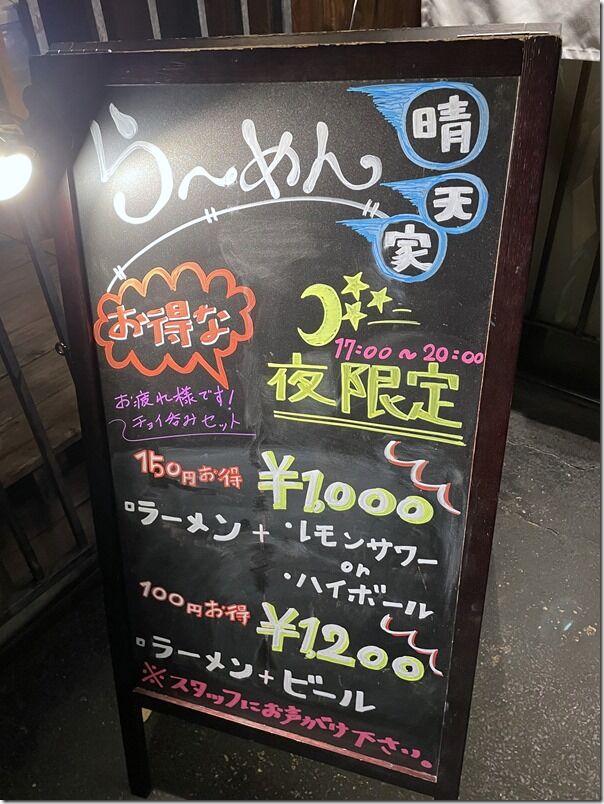 ら〜めん
晴
天
家
お得な
17:00〜20:00
夜限定
お疲れ様です!
チョイ呑みセット
150円お得
¥1,000
ラーメン+・レモンサワー
or
・ハイボール
100円お得
¥1,200
ラーメン+ビール
※スタッフにお声がけ下さい。